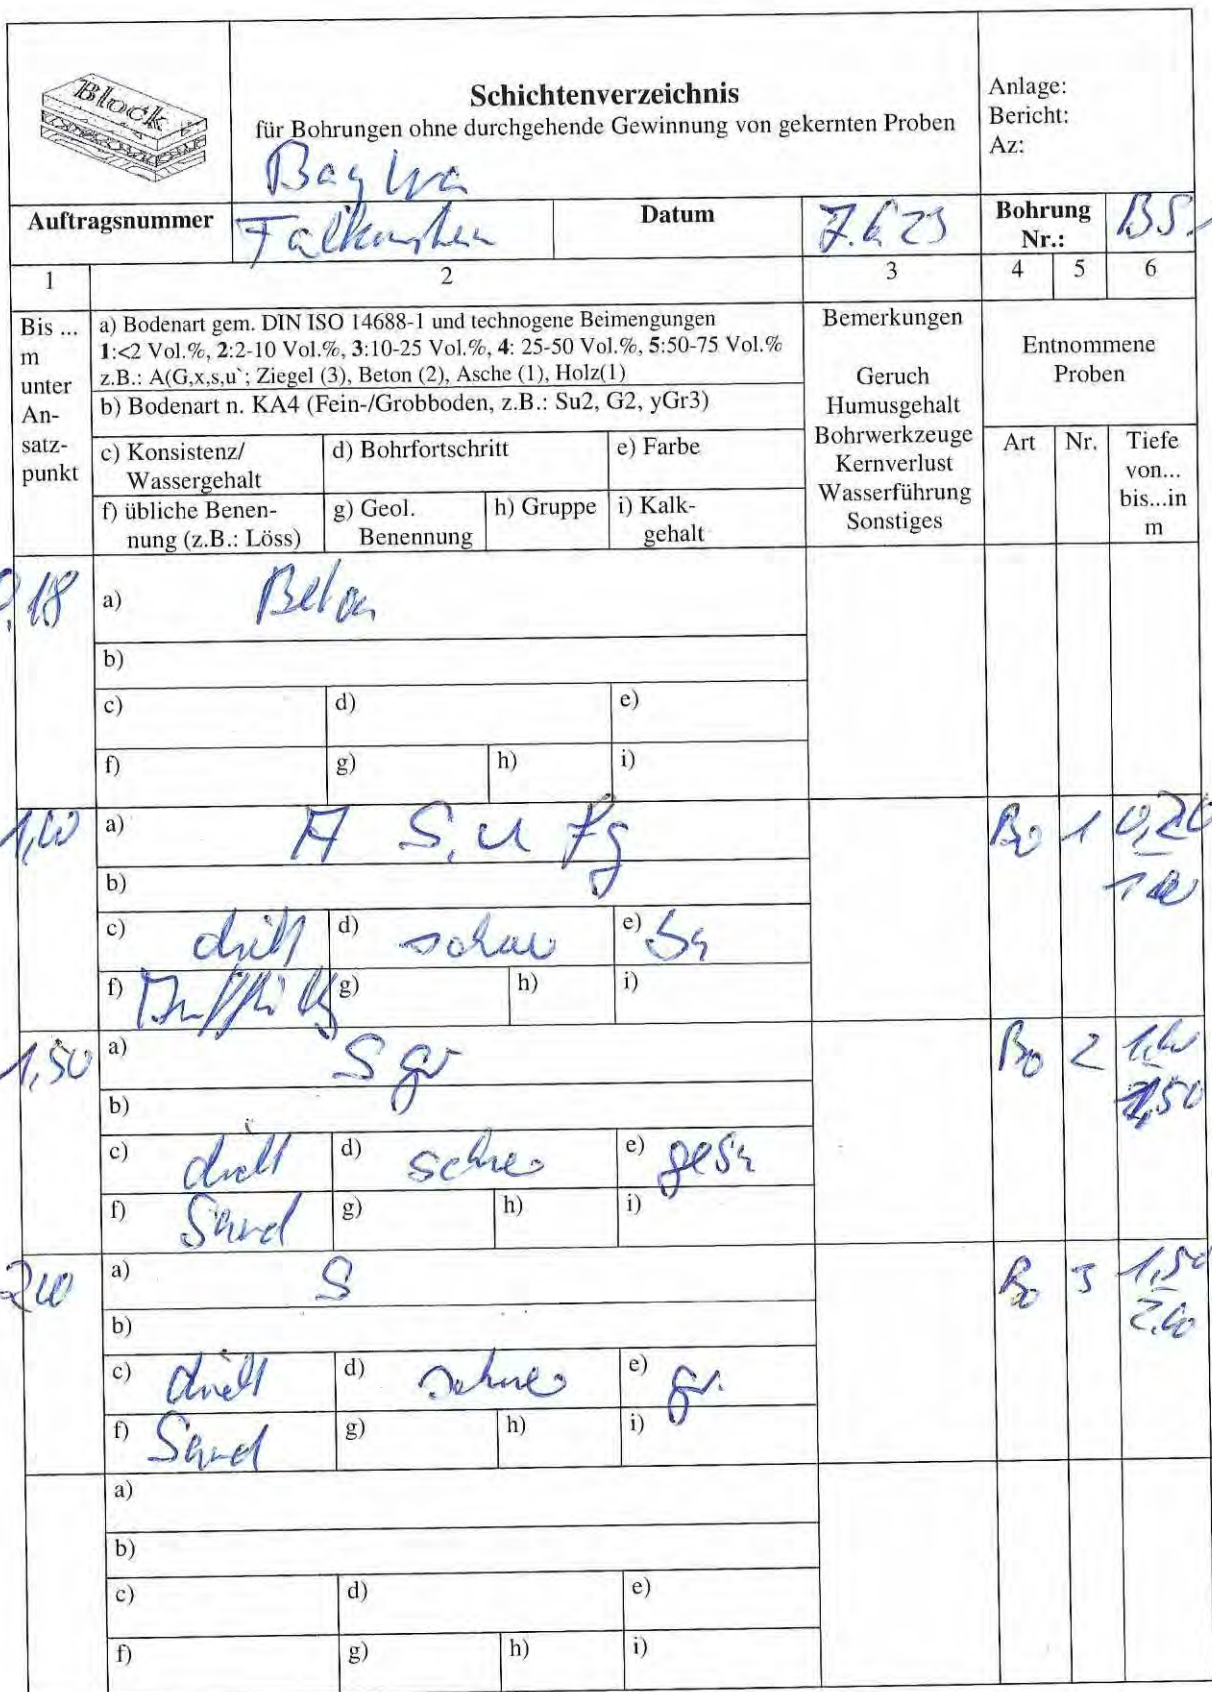 Block
Schichtenverzeichnis
für Bohrungen ohne durchgehende Gewinnung von gekernten Proben
Anlage:
Bericht:
Az:
Auftragsnummer
Datum
7.6.23
Bohrung
Nr.:
BS.
1
2
3
4
5
6
Bis ...
m
unter
An-
satz-
punkt
a) Bodenart gem. DIN ISO 14688-1 und technogene Beimengungen
1:<2 Vol.%, 2:2-10 Vol.%, 3:10-25 Vol.%, 4: 25-50 Vol.%, 5:50-75 Vol.%
z.B.: A(G,x,s,u`; Ziegel (3), Beton (2), Asche (1), Holz(1)
b) Bodenart n. KA4 (Fein-/Grobboden, z.B.: Su2, G2, yGr3)
c) Konsistenz/
Wassergehalt
d) Bohrfortschritt
e) Farbe
f) übliche Benen-
nung (z.B.: Löss)
g) Geol.
Benennung
h) Gruppe
i) Kalk-
gehalt
Bemerkungen
Geruch
Humusgehalt
Bohrwerkzeuge
Kernverlust
Wasserführung
Sonstiges
Entnommene
Proben
Art
Nr.
Tiefe
von...
bis...in
m
0,18
a) Beton
b)
c)
d)
e)
f)
g)
h)
i)
1,00
a) A S, u fg
Bo 1 0,20
1,00
b)
c)
d)
e)
f)
g)
h)
i)
1,50
a) S
Bo 2 1,00
1,50
b)
c)
d)
e)
f) Sand
g)
h)
i)
2,00
a) S
Bo 3 1,50
2,00
b)
c)
d)
e) gr.
f) Sand
g)
h)
i)
a)
b)
c)
d)
e)
f)
g)
h)
i)